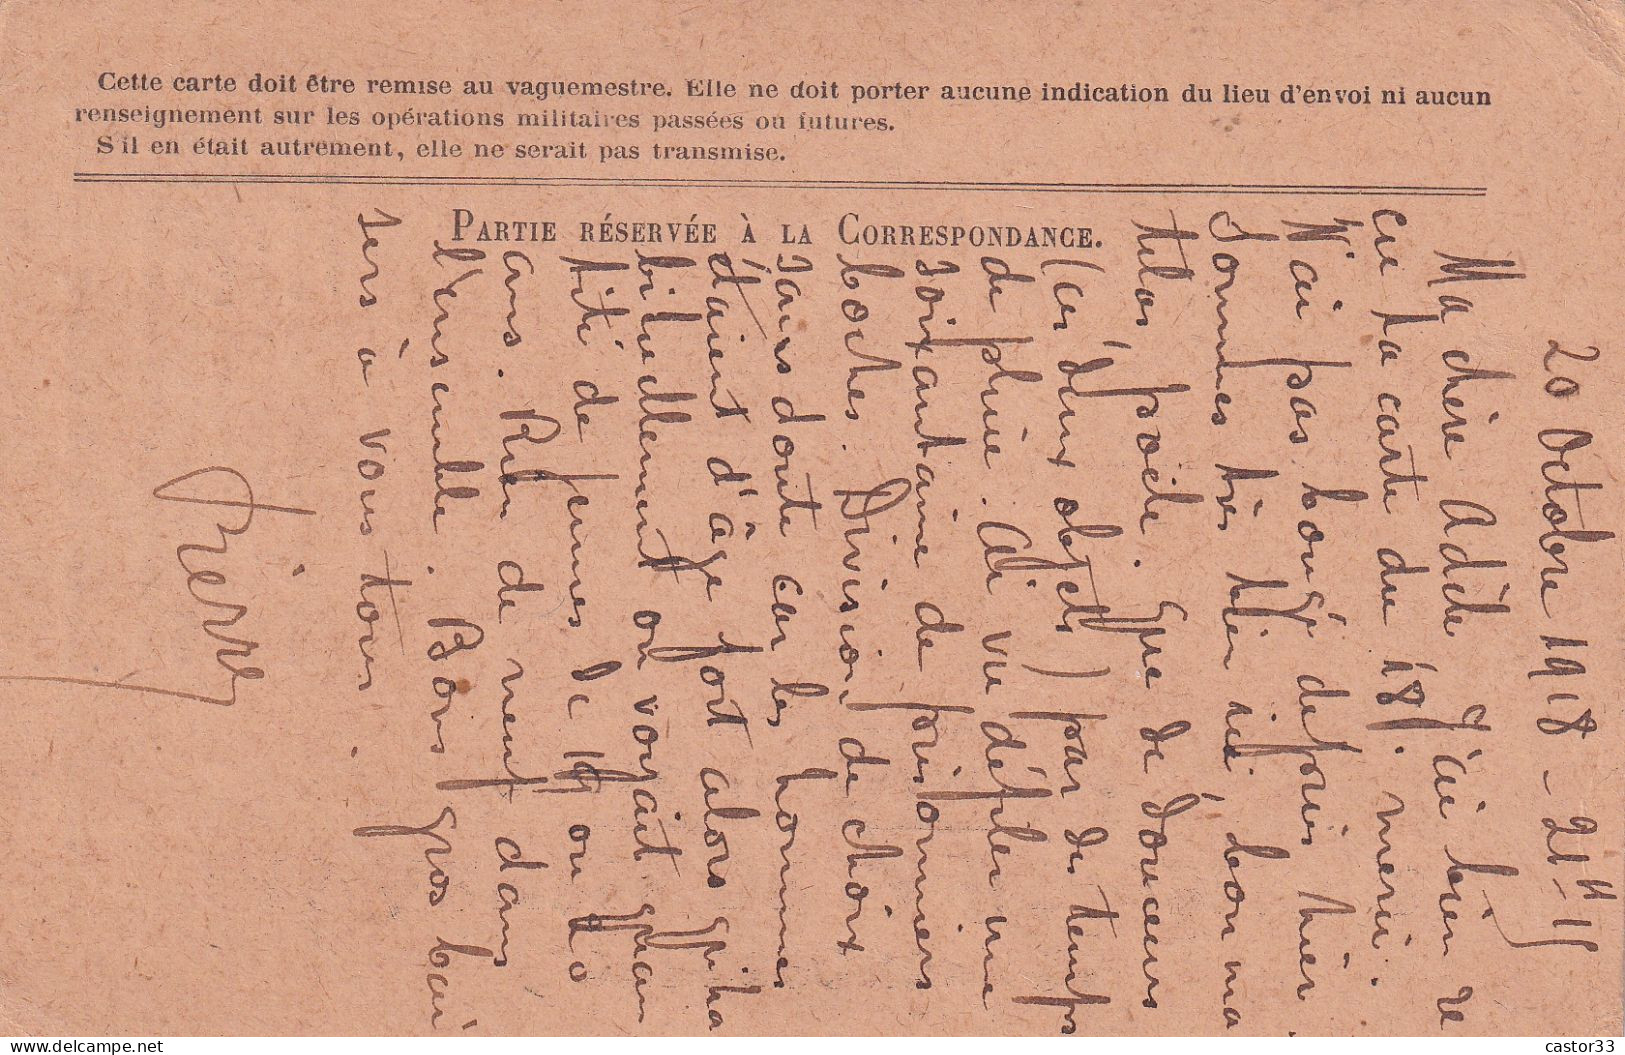 Cette carte doit être remise au vaguemestre. Elle ne doit porter aucune indication du lieu d'envoi ni aucun
renseignement sur les opérations militaires passées ou futures.
S'il en était autrement, elle ne serait pas transmise.
PARTIE RÉSERVÉE À LA CORRESPONDANCE.
20 Octobre 1918 - 21H 15
Ma chère Adèle J'ai bien re
çu ta carte du 18. merci.
N'ai pas bougé depuis hier.
Sommes très bien ici, bon ma
telas, poële. Que de douceurs
(ces deux objets) par de temps
de pluie. Ai vu défiler une
soixantaine de prisonniers
boches. Division de choix
sans doute car les hommes
étaient d'âge fort alors qu'ha
bituellement on voyait quan
tité de jeunes de 19 ou 20
ans. Rien de neuf dans
l'ensemble. Bons gros bai
sers à vous tous.
Pierre
delcampe.net
castor33